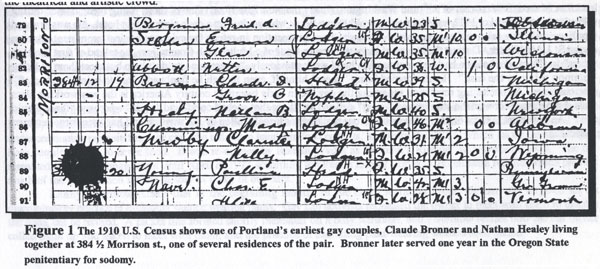 the theatrical and artistic crowd.
MORRISON
79 Fred. A. Lodger M W 23 S Illinois
80 Emma Lodger F W 35 M 10 Illinois
81 Glen Lodger M W 35 M 10 Wisconsin
82 Abbott Nettie Lodger F W W California
83 384½ 12 19 Bronner Claude I. Head M W 39 S Michigan
84 Grove C Nephew M W 25 S Michigan
85 Healy Nathan B. Lodger M W 40 S New York
86 Cummings Mary Lodger F W 46 0 0 Alabama
87 Newby Clarence Lodger M W 31 M 2 Iowa
88 Nelly Lodger F W 21 M 2 0 0 Wyoming
89 20 Young Pauline Head F W 35 S Pennsylvania
90 Chas. E. Lodger M W 42 M 3
91 Lodger F W 28 M 3 0 0 Vermont
Figure 1 The 1910 U.S. Census shows one of Portland's earliest gay couples, Claude Bronner and Nathan Healey living
together at 384 ½ Morrison st., one of several residences of the pair. Bronner later served one year in the Oregon State
penitentiary for sodomy.